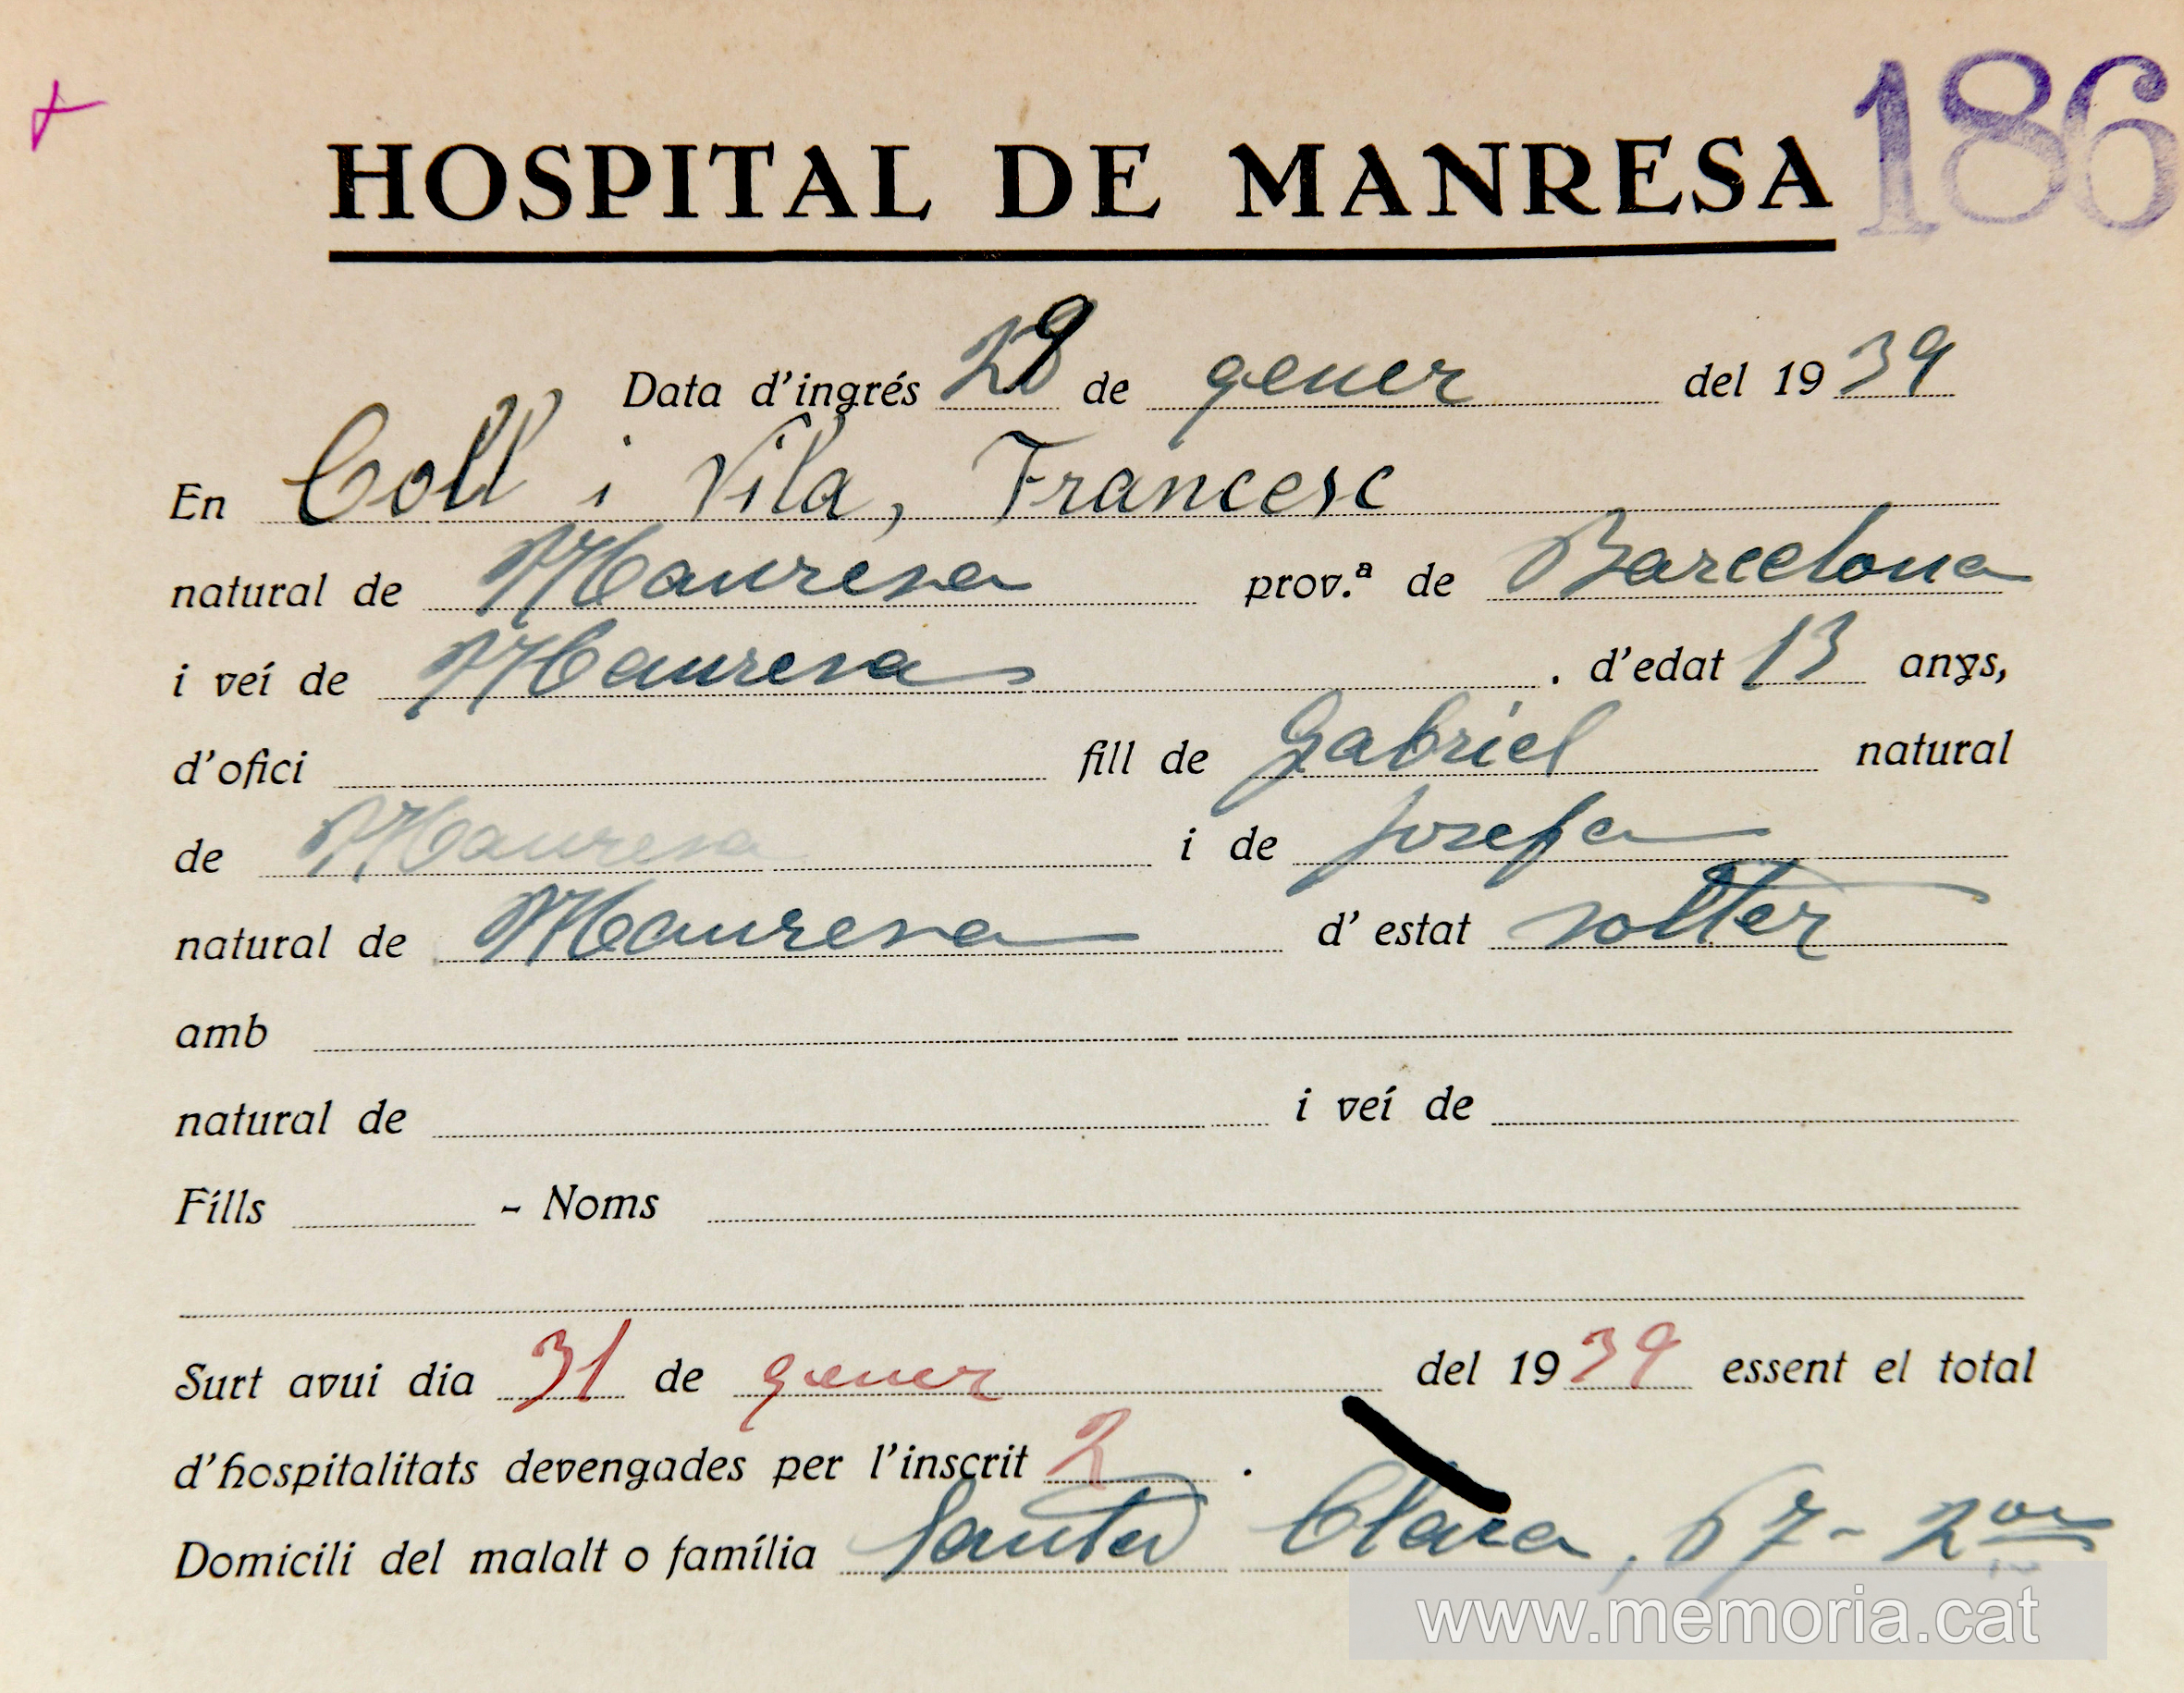 186
HOSPITAL DE MANRESA
Data d'ingrés 29 de gener del 1939
En Coll i Vila, Francesc
natural de Manresa prov.ª de Barcelona
i veí de Manresa . d'edat 13 anys,
d'ofici fill de Gabriel natural
de Manresa i de Josefa
natural de Manresa d' estat solter
amb
natural de i veí de
Fills - Noms
Surt avui dia 31 de gener del 1939 essent el total
d'hospitalitats devengades per l'inscrit 2 .
Domicili del malalt o família Santa Clara, 67 - 2on
www.memoria.cat